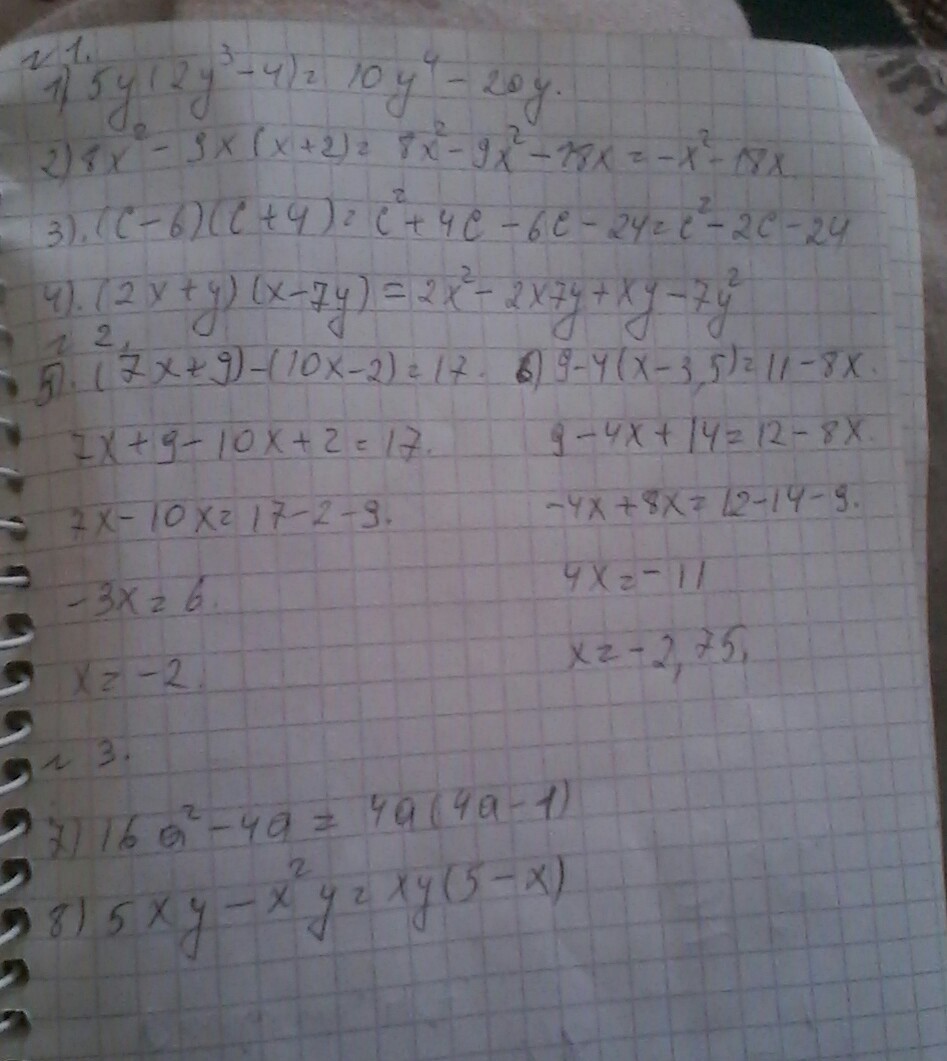 №1.
1) 5y(2y³-4)= 10y⁴-20y.
2) 8x²-9x(x+2)= 8x²-9x²-18x=-x²-18x
3). (c-6)(c+4)=c²+4c-6c-24=c²-2c-24
4). (2x+y)(x-7y)=2x²-2x7y+xy-7y²
№2.
5). (7x+9)-(10x-2)=17. 6) 9-4(x-3,5)=11-8x.
7x+9-10x+2=17. 9-4x+14=12-8x.
7x-10x=17-2-9. -4x+8x=12-14-9.
-3x=6. 4x=-11
x=-2. x=-2,75.
№3.
7) 16a²-4a= 4a(4a-1)
8) 5xy-x²y=xy(5-x)